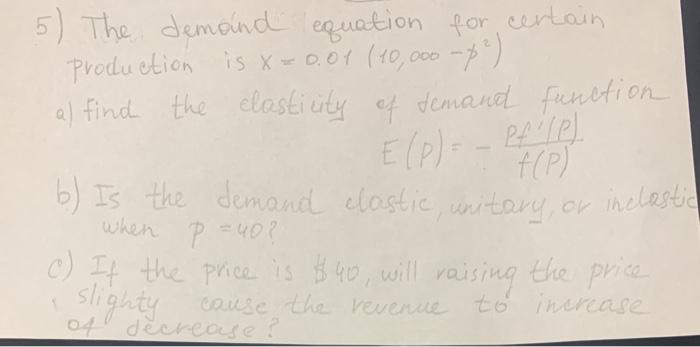 5) The demand equation for certain
production is x = 0.01 (10,000 - p²)
a) find the elasticity of demand function
E(p) = - pf'(p) / f(p)
b) Is the demand elastic, unitary, or inelastic
when p = 40?
c) If the price is $40, will raising the price
slighty cause the revenue to increase
of decrease?